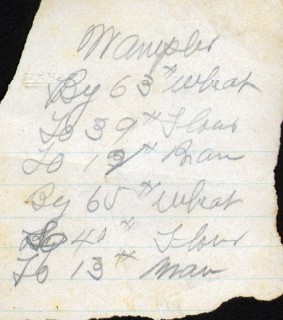 Wampler
By 63 # Wheat
To 39 # Flour
To 13 # Bran
By 65 # Wheat
To 40 # Flour
To 13 # Bran